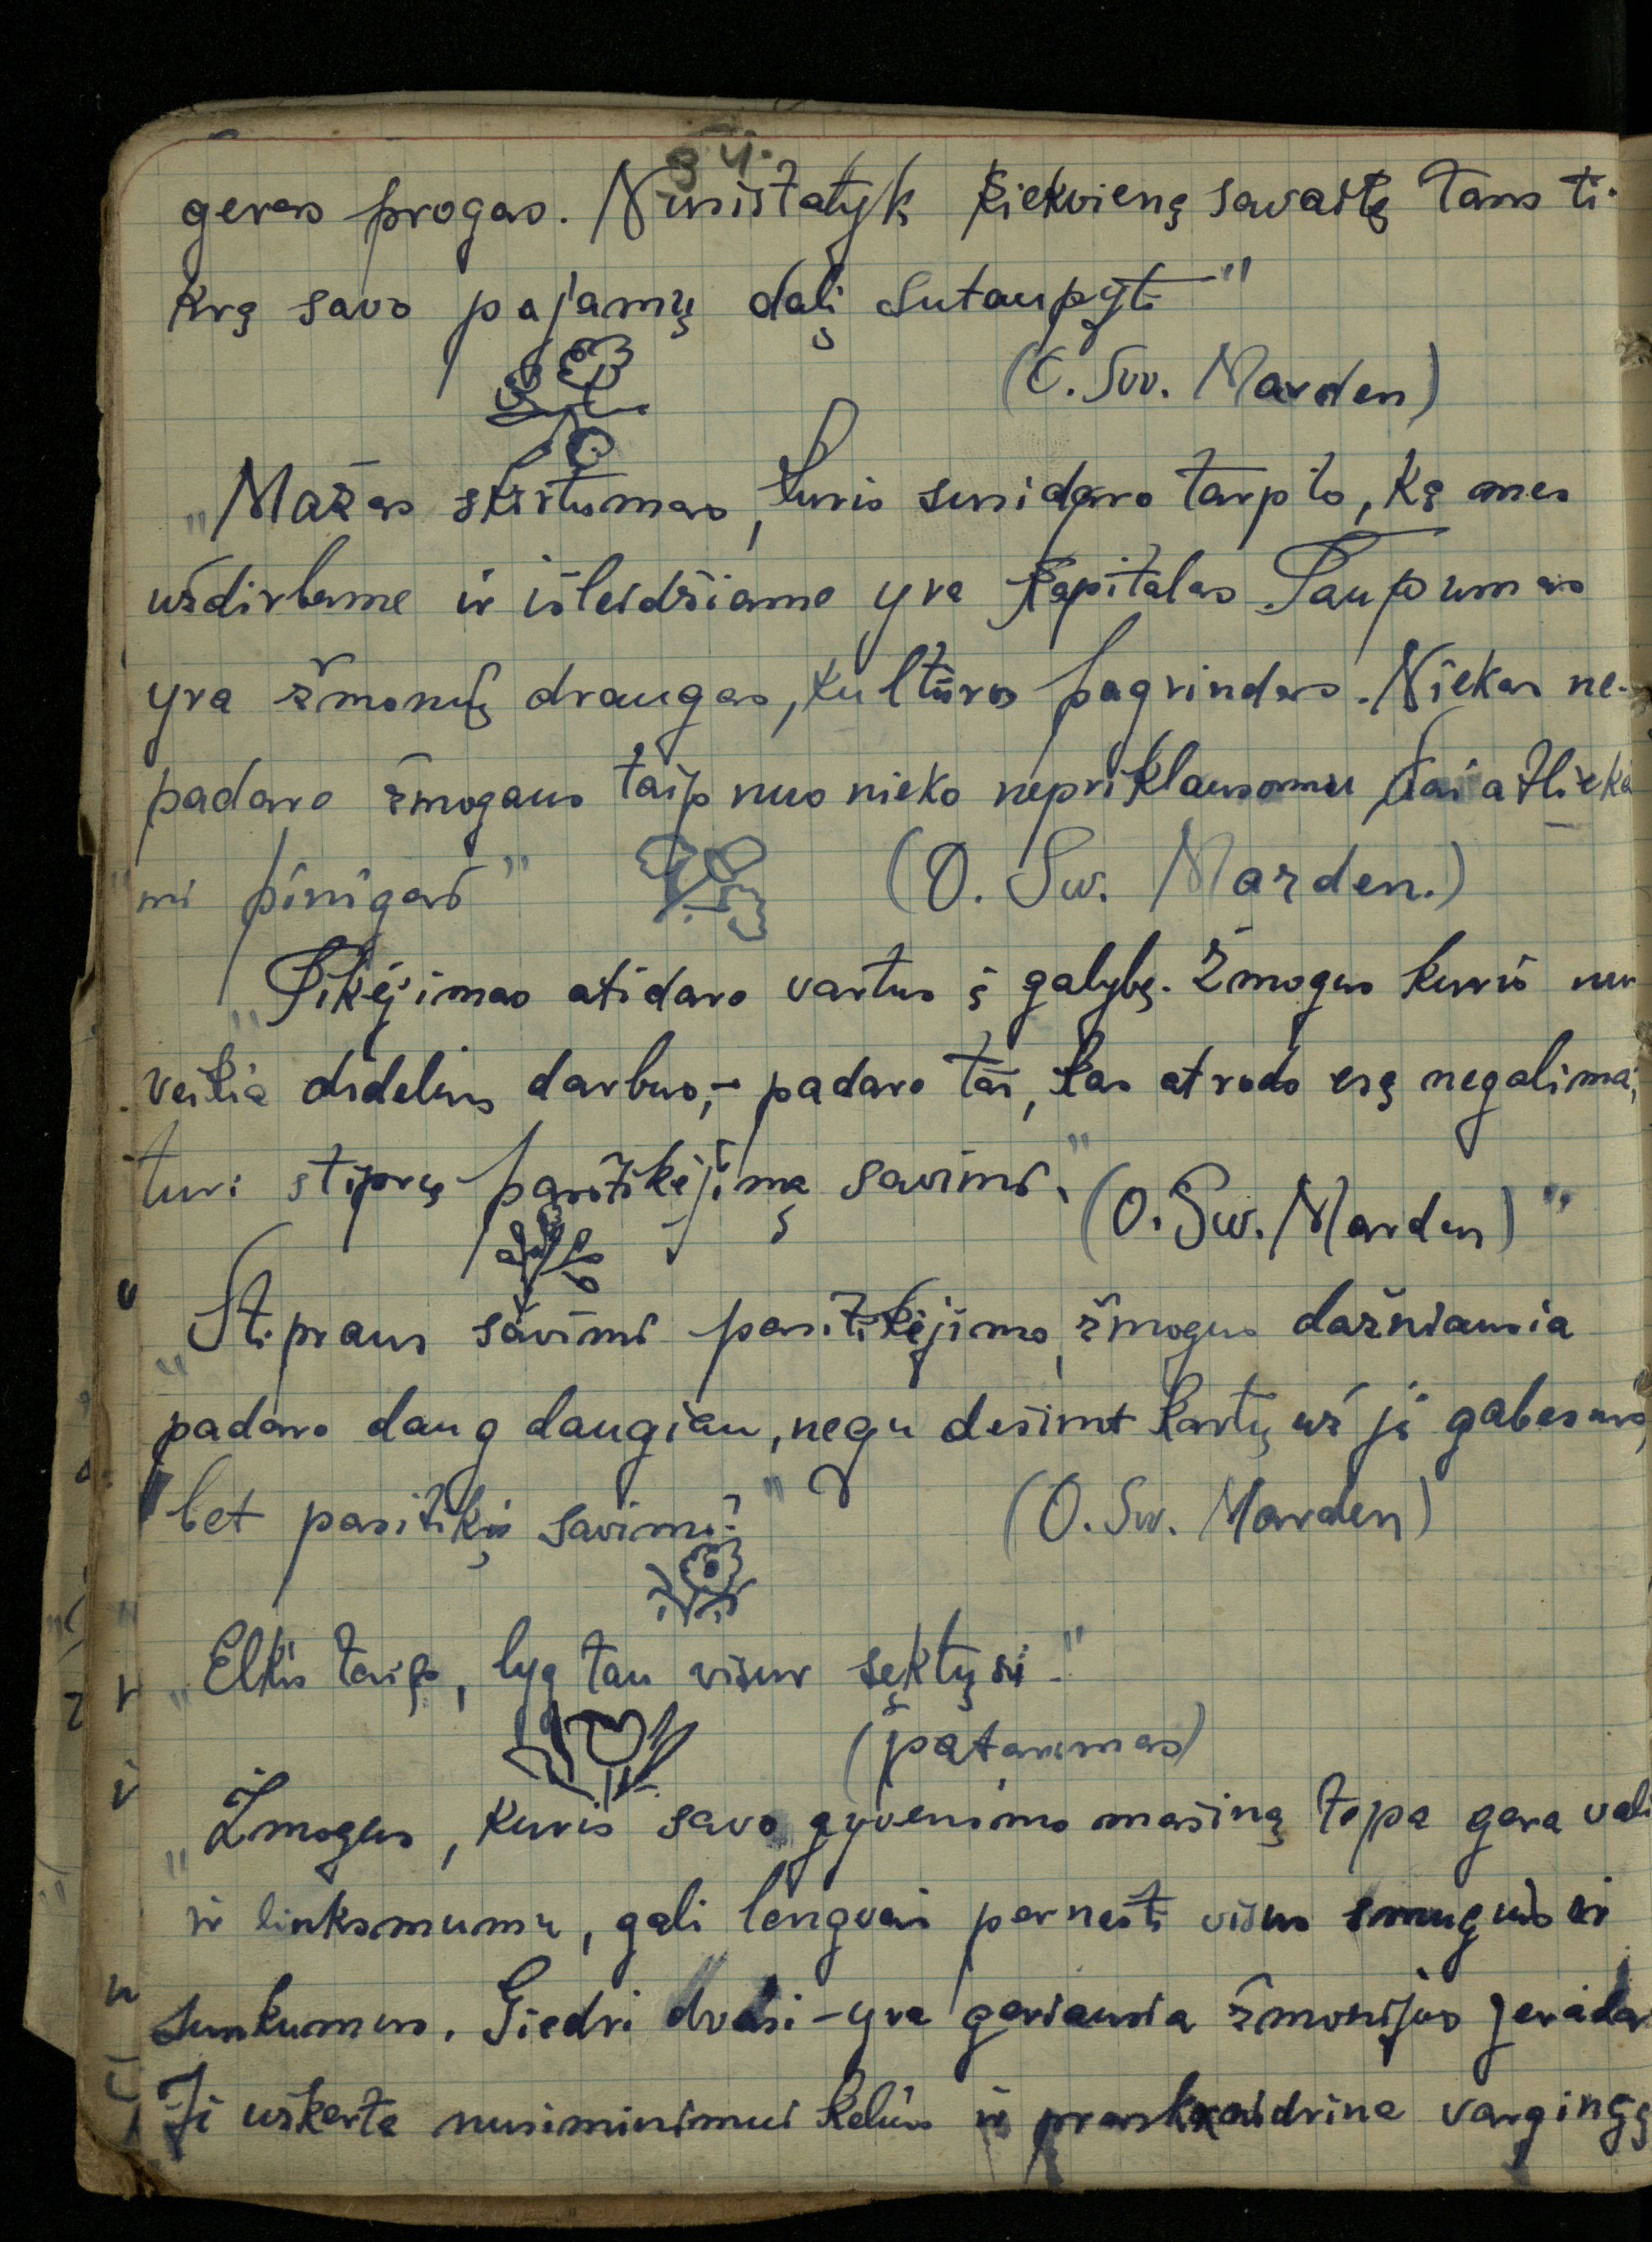 94.
geras progas. Nusistatyk kiekvieną savaitę tam ti-
krą savo pajamų dalį sutaupyti"
(O. Sw. Marden)
„Mažas skirtumas, kuris susidaro tarp to, ką mes
uždirbame ir išleidžiame yra kapitalas. Taupumas
yra žmonių draugas, kultūros pagrindas. Niekas ne-
padaro žmogaus taip nuo nieko nepriklausomu kai atlieka
mi pinigai"
(O. Sw. Marden.)
„Tikėjimas atidaro vartus į galybę. Žmogus kuris nu
veikia didelius darbus,- padaro tai, kas atrodo esą negalima,
turi stiprų pasitikėjimą savimi."
(O. Sw. Marden)"
„Stipraus savimi pasitikėjimo, žmogus dažniausia
padaro daug daugiau, negu dešimt kartų už jį gabesnis,
bet pasitikįs savimi."
(O. Sw. Marden)
„Elkis taip, lyg tau visur sektųsi."
(patarimas)
„Žmogus, kuris savo gyvenimo mašiną tepa gera vali
ir linksmumu, gali lengvai pernešti visus smūgius ir
sunkumus. Giedri dvasi - yra geriausia žmonijos gerada
Ji užkerta nusiminimui kelius ir praskaidrina vargingą